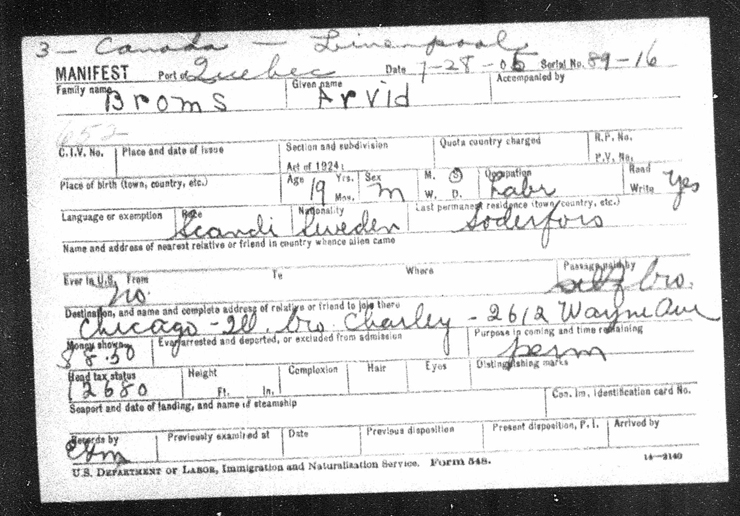 3 - Canada - Liverpool
MANIFEST Port of Quebec Date 7-28-05 Serial No. 89-16
Family name Broms Given name Arvid Accompanied by
652
C.I.V. No. Place and date of issue Section and subdivision Act of 1924: Quota country charged R.P. No. P.V. No.
Place of birth (town, country, etc.) Age 19 Yrs. Mos. Sex m M. S W. D. Occupation Labr Read Write Yes
Language or exemption Race Scandi Nationality Sweden Last permanent residence (town, country, etc.) Soderfors
Name and address of nearest relative or friend in country whence alien came
Ever in U.S. no. From To Where Passage paid by self bro.
Destination, and name and complete address of relative or friend to join there
Chicago - Ill. bro Charley - 2612 Wayne Ave
Money shown $8.50 Ever arrested and deported, or excluded from admission Purpose in coming and time remaining perm
Head tax status 12680 Height Ft. In. Complexion Hair Eyes Distinguishing marks
Seaport and date of landing, and name of steamship Con. Im. Identification card No.
Records by Previously examined at Date Previous disposition Present disposition, P.I. Arrived by
U.S. DEPARTMENT OF LABOR, Immigration and Naturalization Service. Form 548. 14-2140